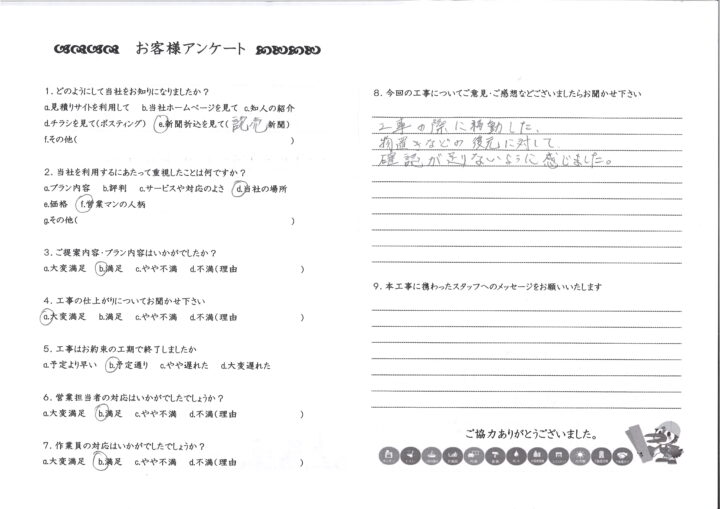 お客様アンケート
1. どのようにして当社をお知りになりましたか？
a.見積りサイトを利用して b.当社ホームページを見て c.知人の紹介
d.チラシを見て(ポスティング) e.新聞折込を見て( 読売 新聞)
f.その他( )
2. 当社を利用するにあたって重視したことは何ですか？
a.プラン内容 b.評判 c.サービスや対応のよさ d.当社の場所
e.価格 f.営業マンの人柄
g.その他( )
3. ご提案内容・プラン内容はいかがでしたか？
a.大変満足 b.満足 c.やや不満 d.不満(理由 )
4. 工事の仕上がりについてお聞かせ下さい
a.大変満足 b.満足 c.やや不満 d.不満(理由 )
5. 工事はお約束の工期で終了しましたか
a.予定より早い b.予定通り c.やや遅れた d.大変遅れた
6. 営業担当者の対応はいかがでしたでしょうか？
a.大変満足 b.満足 c.やや不満 d.不満(理由 )
7. 作業員の対応はいかがでしたでしょうか？
a.大変満足 b.満足 c.やや不満 d.不満(理由 )
8. 今回の工事についてご意見・ご感想などございましたらお聞かせ下さい
工事の際に移動した、
物置きなどの復元に対して
確認が足りないように感じました。
9. 本工事に携わったスタッフへのメッセージをお願いいたします
ご協力ありがとうございました。